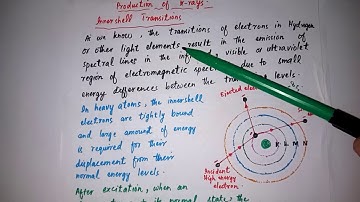 Production of X-rays.
Innershell Transitions
As we know, the transitions of electrons in Hydrogen
or other light elements result in the emission of
spectral lines in the visible or ultraviolet
region of electromagnetic due to small
energy differences between the levels.
In heavy atoms, the innershell
electrons are tightly bound
and large amount of energy
is required for their
displacement from their
normal energy levels.
After excitation, when an
its normal state, the
Ejected
K L M N
Incident
High energy
electron.